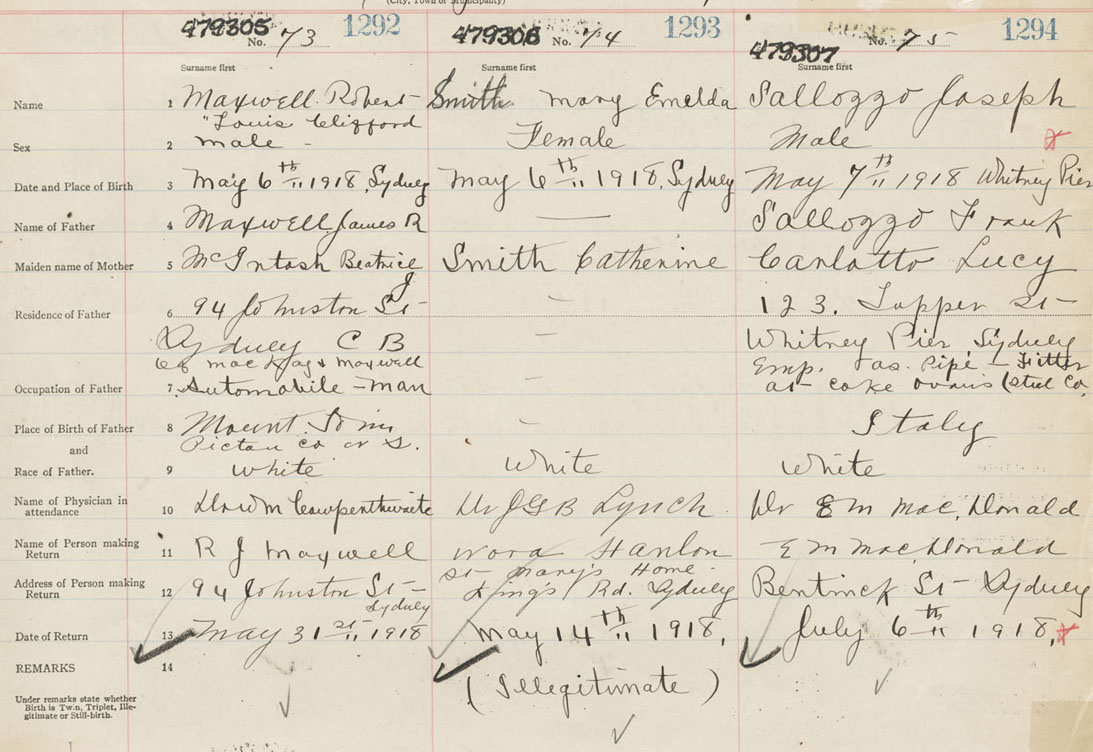 (City, Town or Municipality)
479305 No. 73 1292 479306 No. 74 1293 479307 No. 75 1294
Surname first Surname first Surname first
Name 1 Maxwell Robert Smith Mary Emelda Sallozzo Joseph
"Louis Clifford
Sex 2 male - Female Male
Date and Place of Birth 3 May 6th " 1918, Sydney May 6th " 1918, Sydney May 7th " 1918 Whitney Pier
Name of Father 4 Maxwell James R Sallozzo Frank
Maiden name of Mother 5 McIntosh Beatrice J Smith Catherine Carlotto Lucy
Residence of Father 6 94 Johnston St - 123. Tupper St -
Sydney C B - Whitney Pier Sydney
of MacKay & Maxwell Emp. as Pipe-Fitter
Occupation of Father 7 Automobile-man - at coke ovans (steel Co,
Place of Birth of Father 8 Mount Tom - Italy
and Pictou Co N S.
Race of Father. 9 white White White
Name of Physician in attendance 10 Dr W M Cowperthwaite Dr J G B Lynch. Dr E M MacDonald
Name of Person making Return 11 R J Maxwell Nora Hanlon E M MacDonald
St Mary's Home
Address of Person making Return 12 94 Johnston St - Sydney King's Rd. Sydney Bentinck St - Sydney
Date of Return 13 May 31st " 1918 May 14th " 1918, July 6th " 1918,
REMARKS 14 (Illegitimate)
Under remarks state whether
Birth is Twin, Triplet, Ille-
gitimate or Still-birth.